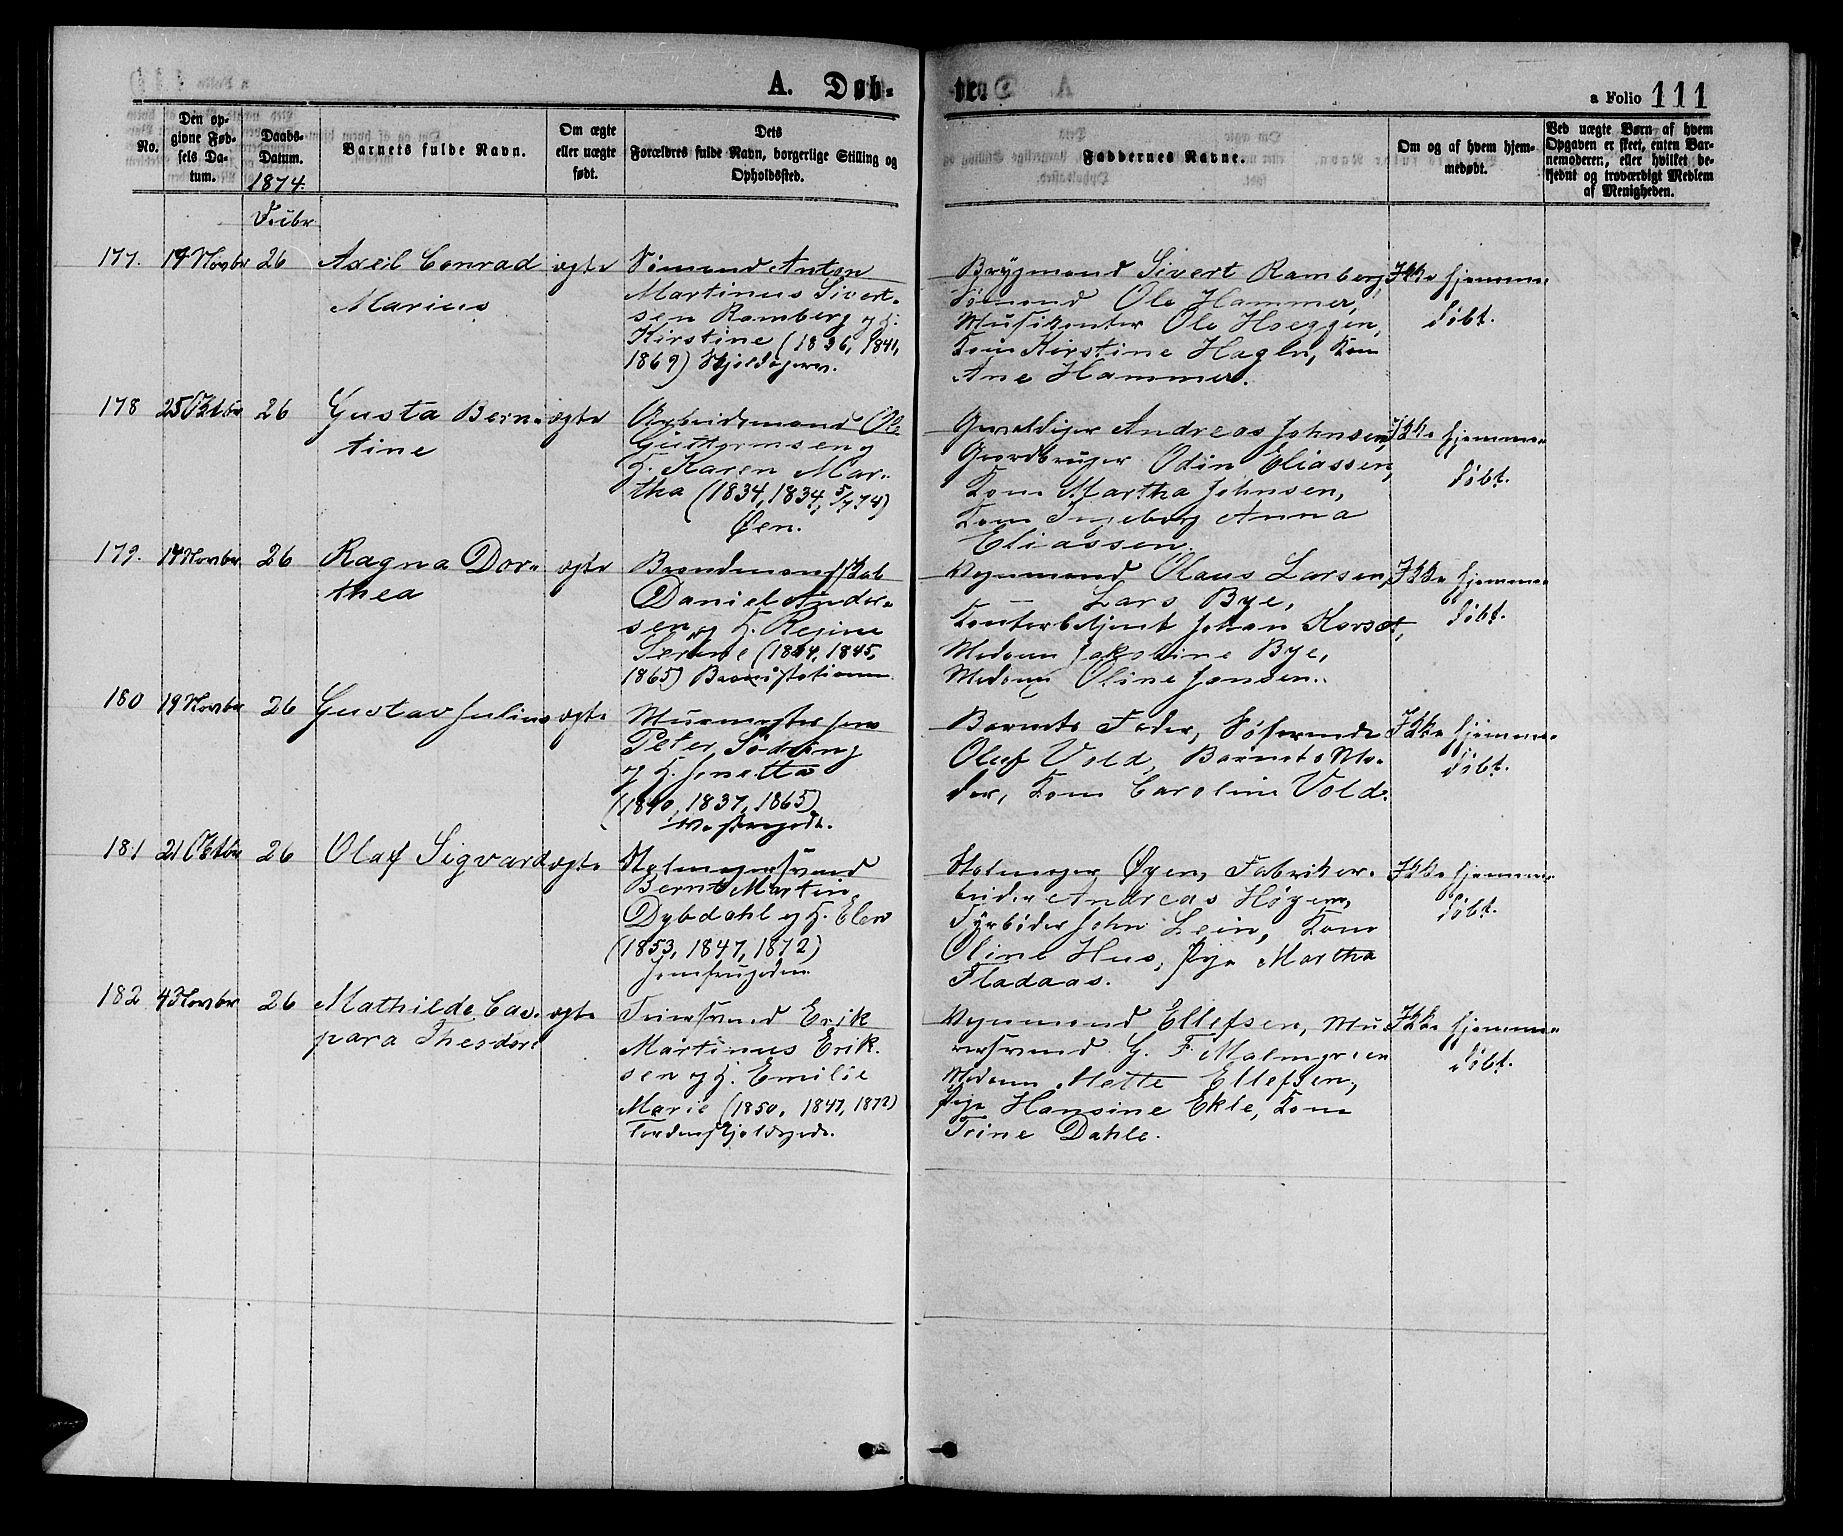 A. Døb-
te.
a Folio 111
No.
Den op-
givne Fød-
sels Da-
tum.
Daabs-
Datum.
1874.
Barnets fulde Navn.
Om ægte
eller uægte
født.
Dets
Forældres fulde Navn, borgerlige Stilling og
Opholdssted.
Faddernes Navne.
Om og af hvem hjem-
medøbt.
Ved uægte Børn af hvem
Opgaven er skeet, enten Bar-
nemoderen, eller hvilket be-
kjendt og troværdigt Medlem
af Menigheden.
177. 17 Novbr 26 Axell Conrad ægte
Marius
Sømand Anton
Martinus Sivert-
sen Ramberg og H.
Kirstine (1836, 1841,
1869) Skjoldagerv.
Brygmand Sivert Ramberg,
Sømand Ole Hammer,
Musikanter Ole Hoeggen,
Kone Kirstine Hagen, Kone
Ane Hammer.
Ikke hjemme-
døbt.
178 25 Oktbr 26 Gusta Bern- ægte
tine
Arbeidsmand Ole
Guttormsen og
H. Karen Mar-
tha (1834, 1834, 5/7 74)
Øen.
Andreas Johnsen,
Gaardbruger Odin Eliassen,
Kone Martha Johnsen,
Kone Ingeborg Anna
Eliassen.
Ikke hjemme-
døbt.
179. 17 Novbr 26 Ragna Dor- ægte
thea
Daniel Ander-
sen og H. Regine
Serine (1844, 1845,
1865) Brandstationen
Vognmand Olaus Larsen,
Lars Bye,
Kontorbetjent Johan Korsæt,
Madam Jakobine Bye,
Madam Oline Jansen.
Ikke hjemme-
døbt.
180 19 Novbr 26 Gustav Julius ægte
Muurmester Jens
Peter Sødring
og H. Jonetta
(1840, 1837, 1865)
Barnets Fader, Søfarende
Oluf Vold, Barnets Mo-
der, Kone Caroline Vold.
Ikke hjemme-
døbt.
181 21 Oktbr 26 Olaf Sigvard ægte
Stolmagersvend
Bernt Martin
Dybdahl og H. Elen
(1853, 1847, 1872)
Jomfrugaden
Stolmager Øyen, Fabrikar-
beider Andreas Høyem,
Fyrbøder John Lein, Kone
Oline Hus, Pige Martha
Fladaas.
Ikke hjemme-
døbt.
182 4 Novbr 26 Mathilde Cas- ægte
para Theodore
Feiersvend Erik
Martinus Erik-
sen og H. Emilie
Marie (1850, 1847, 1872)
Tordenskjoldsgade.
Vognmand Ellefsen, Mu-
rersvend G. F. Malmgreen
Madam Mette Ellefsen,
Pige Hansine Ekle, Kone
Trine Dahle.
Ikke hjemme-
døbt.